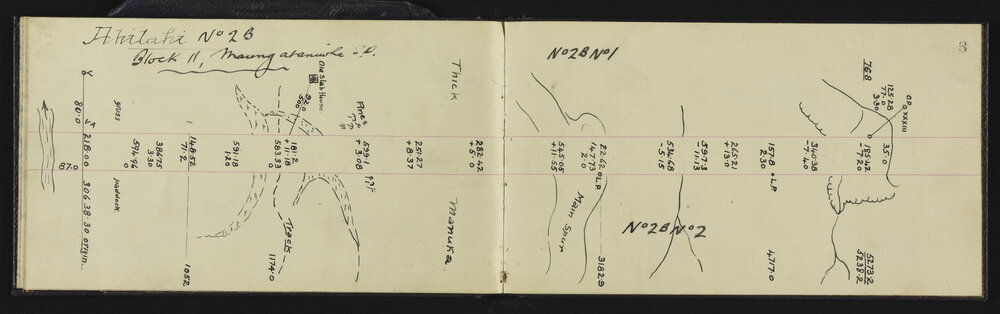 Ahilahi No 2B
Block II, Maungataniwha S.D.
80.0
218.00
87.0
306.38.30 origin.
grass
paddock.
594.96
0
386.75
3.30
148.52
71.2
1052
591.18
12.0
Old Slab House.
92.0
500
181.2
+ 11.18
583.93
0
Track
1174.0
Pines
599.1
+ 3.08
251.27
+ 8.37
Thick
Manuka
282.42
+ 5.0
No 2B No 1
545.05
+ 11.55
Main Spur
22.62 o L.P.
147.73
2.0
3182.9
534.68
- 5.15
597.73
- 11.13
No 2B No 2
265.21
+ 13.0
157.8
2.30
o L.P.
4717.0
340.38
- 7.40
768
125.28
77.0
3.30
O.P. Q XXXIII
35.0
185.42
- 7.20
5273.2
5238.2
8